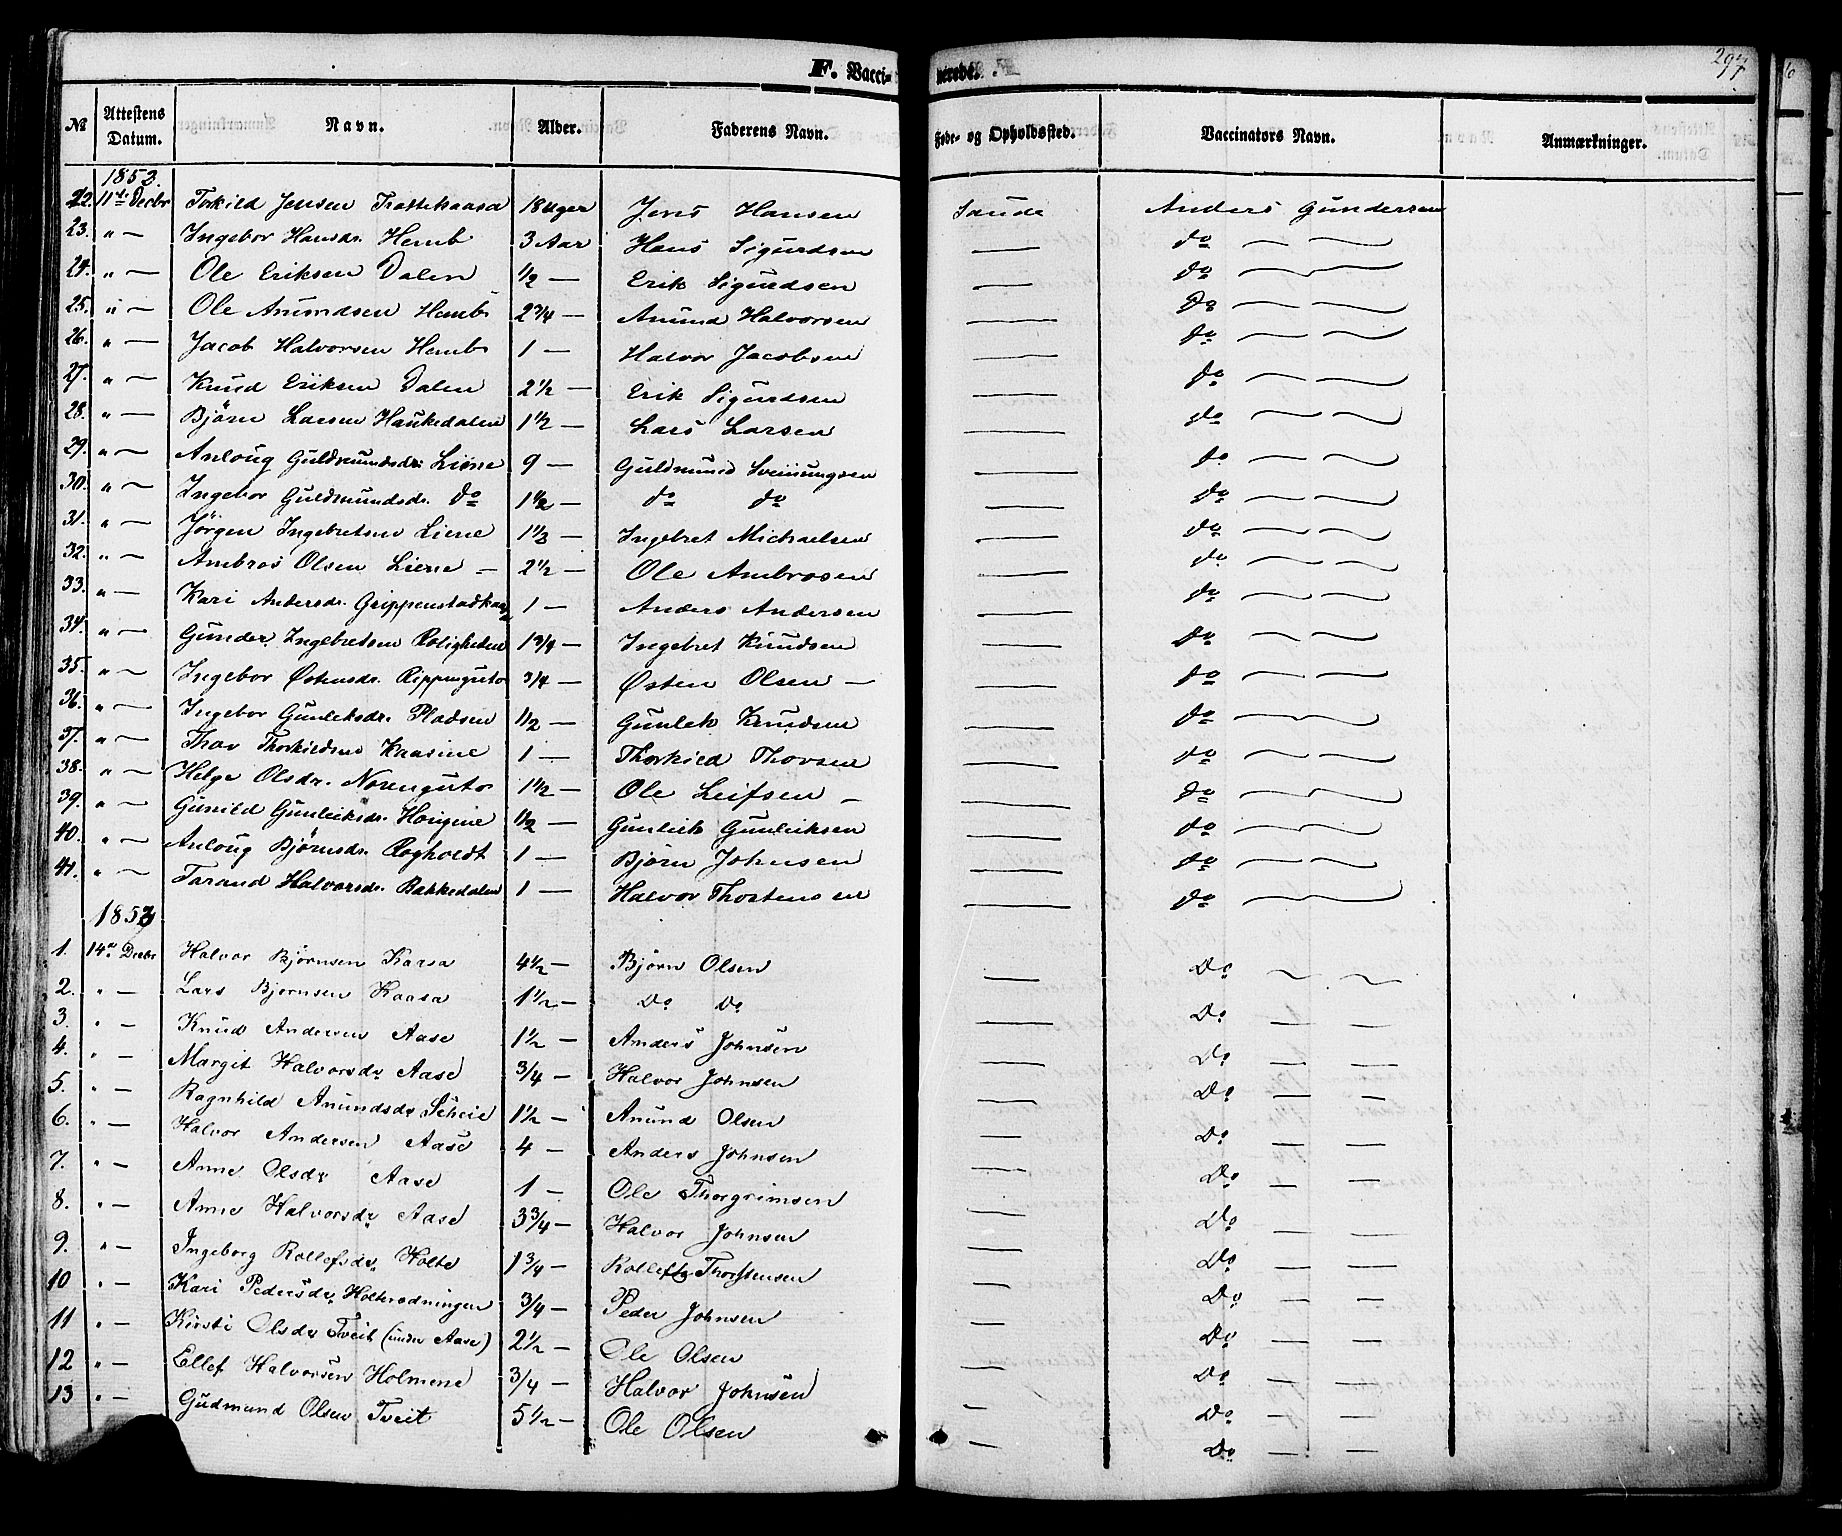 F. Vaccinerede.
297
№ Attestens Datum. Navn. Alder. Faderens Navn. Føde- og Opholdssted. Vaccinators Navn. Anmærkninger.
1853.
22. 11te Decbr Torkild Jensen Trottekaasa 18 Uger Jens Hansen Saude Anders Gundersen
23. " — Ingebor Hansdr. Hemb 3 Aar Hans Sigurdsen — do — —
24. " — Ole Eriksen Dalen 1/2 — Erik Sigurdsen — do — —
25. " — Ole Anundsen Hemb 2 3/4 — Anund Halvorsen — Do — —
26. " — Jacob Halvorsen Hemb 1 — Halvor Jacobsen — do — —
27. " — Knud Eriksen Dalen 2 1/2 — Erik Sigurdsen — do — —
28. " — Bjørn Larsen Haukedalen 1 1/2 — Lars Larsen — do — —
29. " — Anloug Guldmundsdr. Liene 9 — Guldmund Sveinungsen — do — —
30. " — Ingebor Guldmundsdr. do 1 1/2 — do do — do — —
31. " — Jörgen Ingebretsen Liene 1 1/3 — Ingebret Michaelsen — do — —
32. " — Ambros Olsen Liene — 2 1/2 — Ole Ambrosen — do — —
33. " — Kari Andersdr. Grippenstadkaasa 1 — Anders Andersen — do — —
34. " — Gunder Ingebretsen Roligheden 1 3/4 — Ingebret Knudsen — do — —
35. " — Ingebor Østensdr. Rippenguto 3/4 — Østen Olsen — — do — —
36. " — Ingebor Gunleksdr. Pladsen 1/2 — Gunlek Knudsen — do — —
37. " — Thov Thorkildsen Kaasine 1 — Thorkild Thovsen — do — —
38. " — Helge Olsdr. Norenguto 1 1/2 — Ole Leifsen — — do — —
39. " — Gunild Gunleiksdr. Horigine 1/2 — Gunleik Gunleiksen — do — —
40. " — Anloug Bjørnsdr. Rogholdt 1 — Bjørn Johnsen — do — —
41. " — Tarand Halvorsdr. Bakkedalen 1 — Halvor Thostensen — do — —
1857
1. 14de Decbr Halvor Bjørnsen Kaasa 4 1/2 — Bjørn Olsen — Do — —
2. " — Lars Bjørnsen Kaasa 1 1/2 — Do Do — Do — —
3. " — Knud Andersen Aase 1 1/2 — Anders Johnsen — Do — —
4. " — Margit Halvorsdr Aase 3/4 — Halvor Johnsen — Do — —
5. " — Ragnhild Anundsdr Scheie 1 1/2 — Anund Olsen — Do — —
6. " — Halvor Andersen Aase 4 — Anders Johnsen — Do — —
7. " — Anne Olsdr Aase 1 — Ole Thorgrimsen — Do — —
8. " — Anne Halvorsdr Aase 3 3/4 — Halvor Johnsen — Do — —
9. " — Ingeborg Rollefsdr. Holte 1 3/4 — Rollef Thorstensen — Do — —
10 " — Kari Pedersdr. Holterødningen 3/4 — Peder Johnsen — Do — —
11 " — Kirsti Olsdr Tveit (under Aase) 2 1/2 — Ole Olsen — Do — —
12 " — Ellef Halvorsen Holmene 3/4 — Halvor Johnsen — Do — —
13 " — Gudmund Olsen Tveit 5 1/2 — Ole Olsen — Do — —